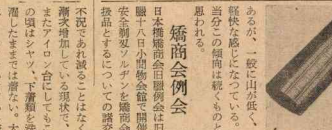 あるが、一般に山が低く、
軽快な感じになつている。
当分この傾向は続くものと
思われる。
矯商会例会
日本橋矯商会旧臘例会は旧
臘十八日小間物会館で開催
安全剃刀ソルヂンを矯商会
扱品とするについての諸交
不況であれ減ることはなく
漸次増加している現状で、
またアイロン台にしてもこ
の頃はシャツ、下着類を洗
濯したままでは着ない。大